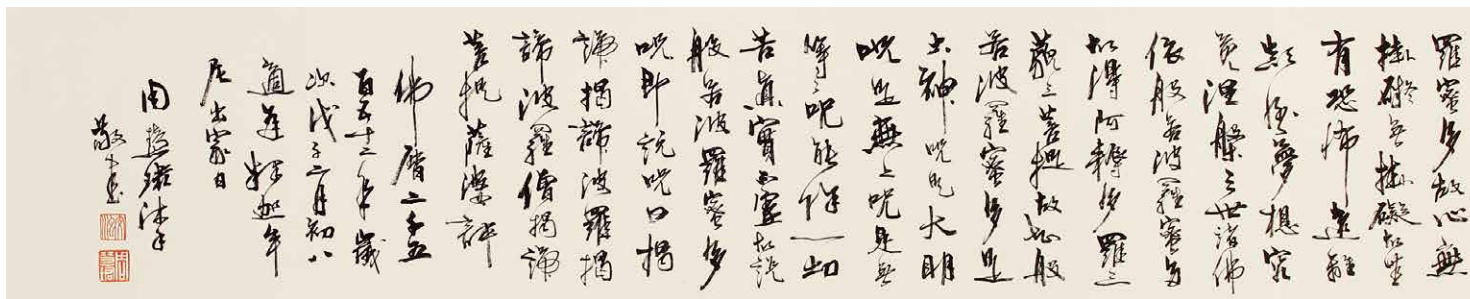 羅蜜多故心無
掛礙無掛礙故無
有恐怖遠離
顛倒夢想究
竟涅槃三世諸佛
依般若波羅蜜多
故得阿耨多羅三
藐三菩提故知般
若波羅蜜多是
大神咒是大明
咒是無上咒是無
等〻咒能除一切
苦真實不虛故說
般若波羅蜜多
咒即說咒曰揭
諦揭諦波羅揭
諦波羅僧揭諦
菩提薩婆訶
佛曆二千五
百五十二年歲
次戊子二月初八
適逢釋迦牟
尼出家日
周慧珺沐手
敬書